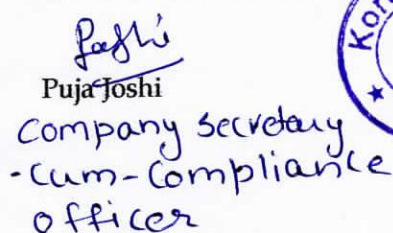 Puja Joshi
Company Secretary
-Cum-Compliance
officer